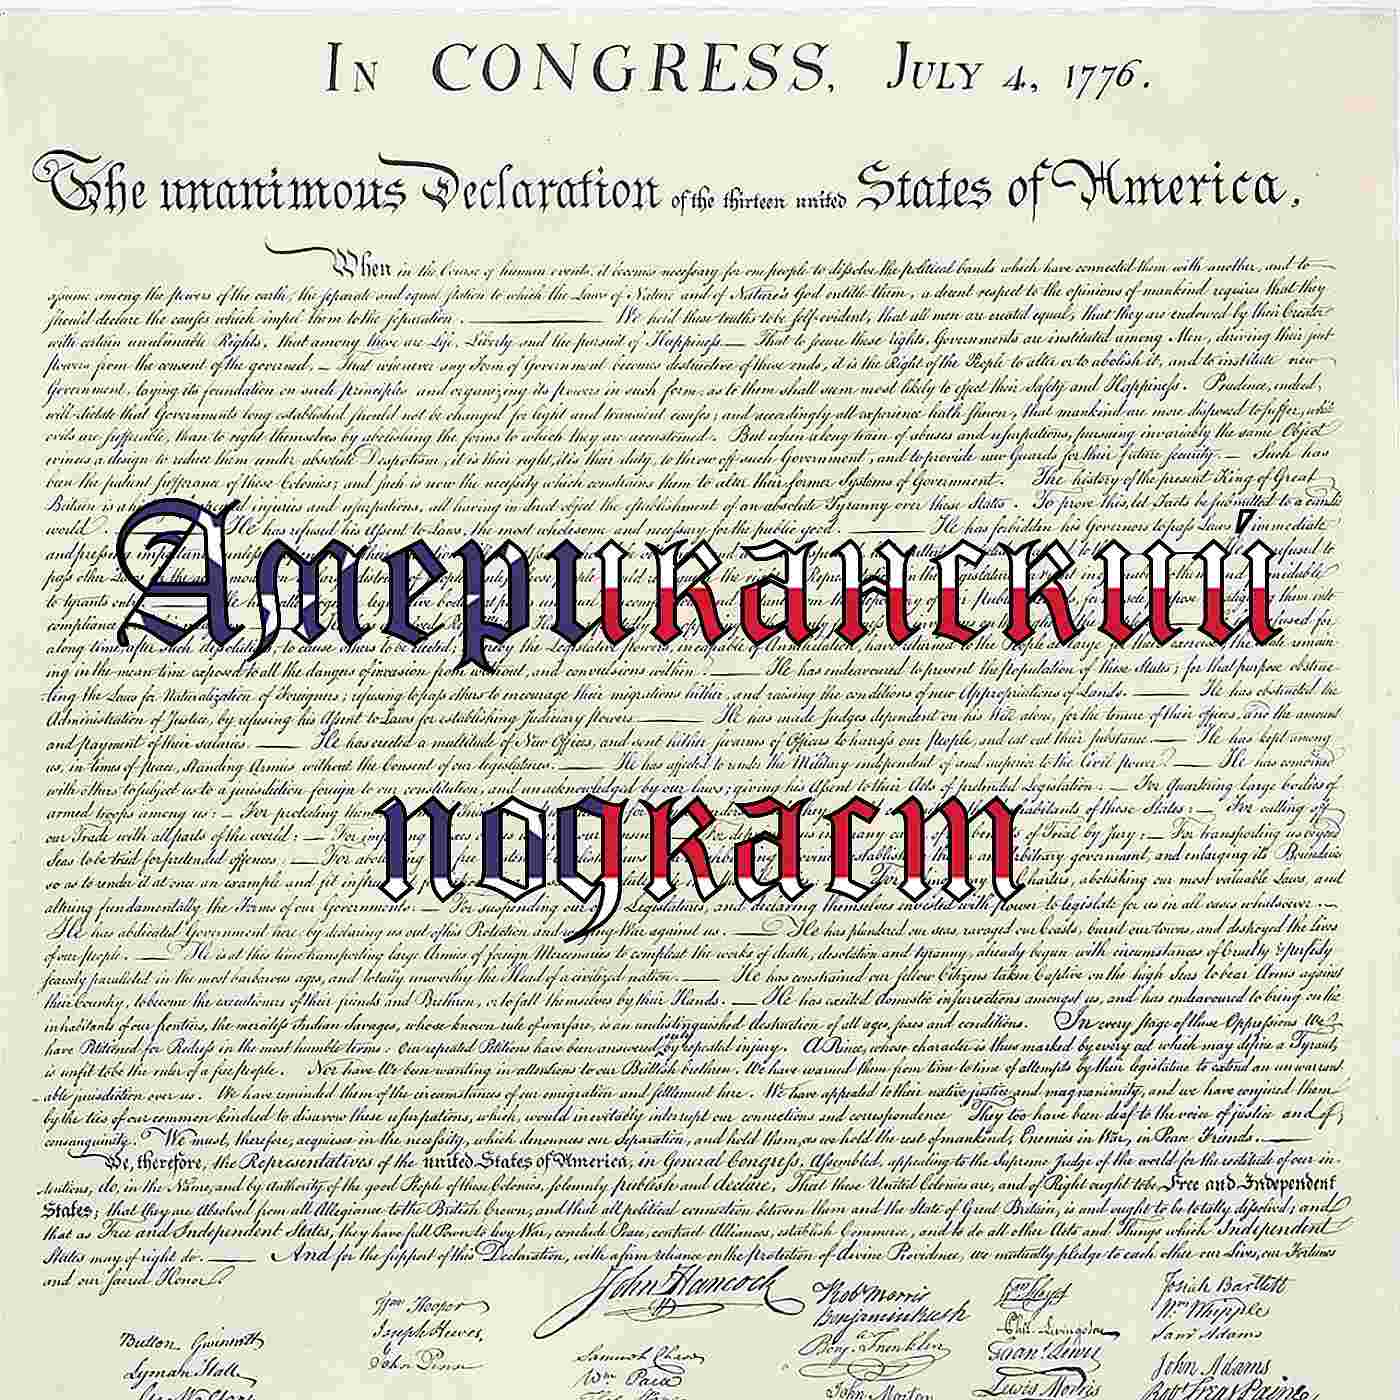 IN CONGRESS, JULY 4, 1776.
The unanimous Declaration of the thirteen united States of America,
When in the Course of human events, it becomes necessary for one people to dissolve the political bands which have connected them with another, and to
assume among the powers of the earth, the separate and equal station to which the Laws of Nature and of Nature's God entitle them, a decent respect to the opinions of mankind requires that they
should declare the causes which impel them to the separation. We hold these truths to be self-evident, that all men are created equal, that they are endowed by their Creator
with certain unalienable Rights, that among these are Life, Liberty and the pursuit of Happiness.— That to secure these rights, Governments are instituted among Men, deriving their just
powers from the consent of the governed, — That whenever any Form of Government becomes destructive of these ends, it is the Right of the People to alter or to abolish it, and to institute new
Government, laying its foundation on such principles and organizing its powers in such form, as to them shall seem most likely to effect their Safety and Happiness. Prudence, indeed,
will dictate that Governments long established should not be changed for light and transient causes; and accordingly all experience hath shewn, that mankind are more disposed to suffer, while
evils are sufferable, than to right themselves by abolishing the forms to which they are accustomed. But when a long train of abuses and usurpations, pursuing invariably the same Object
evinces a design to reduce them under absolute Despotism, it is their right, it is their duty, to throw off such Government, and to provide new Guards for their future security. — Such has
been the patient sufferance of these Colonies; and such is now the necessity which constrains them to alter their former Systems of Government. The history of the present King of Great
Britain is a injuries and usurpations, all having in direct object the establishment of an absolute Tyranny over these States. To prove this, let Facts be submitted to a candid
world He has refused his Assent to Laws, the most wholesome and necessary for the public good. He has forbidden his Governors to pass Laws immediate
Американский
along time, after such dissolutions, to cause others to be elected; whereby the Legislative powers, incapable of Annihilation, have returned to the People at large for their exercise; the State remain
ing in the mean time exposed to all the dangers of invasion from without, and convulsions within. He has endeavoured to prevent the population of these States; for that purpose obstruc
ting the Laws for Naturalization of Foreigners; refusing to pass others to encourage their migrations hither, and raising the conditions of new Appropriations of Lands. He has obstructed the
Administration of Justice, by refusing his Assent to Laws for establishing Judiciary powers He has made Judges dependent on his Will alone, for the tenure of their offices, and the amount
and payment of their salaries. He has erected a multitude of New Offices, and sent hither swarms of Officers to harrass our people, and eat out their substance. He has kept among
us, in times of peace, Standing Armies without the Consent of our legislatures. He has affected to render the Military independent of and superior to the Civil power. He has combined
with others to subject us to a jurisdiction foreign to our constitution, and unacknowledged by our laws; giving his Assent to their Acts of pretended Legislation: — For Quartering large bodies of
armed troops among us: — For protecting them inhabitants of these States: — For cutting off
подкаст
our Trade with all parts of the world: — For of Trial by Jury: — For transporting us beyond
Seas to be tried for pretended offences: — For
so as to render it at once an example and fit Charters, abolishing our most valuable Laws, and
altering fundamentally the Forms of our Governments: — For suspending our own Legislatures, and declaring themselves invested with power to legislate for us in all cases whatsoever. —
He has abdicated Government here, by declaring us out of his Protection and waging War against us. He has plundered our seas, ravaged our Coasts, burnt our towns, and destroyed the lives
of our people. — He is at this time transporting large Armies of foreign Mercenaries to compleat the works of death, desolation and tyranny, already begun with circumstances of Cruelty & perfidy
scarcely paralleled in the most barbarous ages, and totally unworthy the Head of a civilized nation. He has constrained our fellow Citizens taken Captive on the high Seas to bear Arms against
their Country, to become the executioners of their friends and Brethren, or to fall themselves by their Hands. — He has excited domestic insurrections amongst us, and has endeavoured to bring on the
inhabitants of our frontiers, the merciless Indian Savages, whose known rule of warfare, is an undistinguished destruction of all ages, sexes and conditions. In every stage of these Oppressions We
have Petitioned for Redress in the most humble terms: Our repeated Petitions have been answered by repeated injury. A Prince, whose character is thus marked by every act which may define a Tyrant,
is unfit to be the ruler of a free people. Nor have We been wanting in attentions to our Brittish brethren. We have warned them from time to time of attempts by their legislature to extend an unwarrant
able jurisdiction over us. We have reminded them of the circumstances of our emigration and settlement here. We have appealed to their native justice and magnanimity, and we have conjured them
by the ties of our common kindred to disavow these usurpations, which, would inevitably interrupt our connections and correspondence They too have been deaf to the voice of justice and of
consanguinity. We must, therefore, acquiesce in the necessity, which denounces our Separation, and hold them, as we hold the rest of mankind, Enemies in War, in Peace Friends.
We, therefore, the Representatives of the united States of America, in General Congress, Assembled, appealing to the Supreme Judge of the world for the rectitude of our in-
tentions, do, in the Name, and by Authority of the good People of these Colonies, solemnly publish and declare, That these United Colonies are, and of Right ought to be Free and Independent
States; that they are Absolved from all Allegiance to the British Crown, and that all political connection between them and the State of Great Britain, is and ought to be totally dissolved; and
that as Free and Independent States, they have full Power to levy War, conclude Peace, contract Alliances, establish Commerce, and to do all other Acts and Things which Independent
States may of right do. And for the support of this Declaration, with a firm reliance on the protection of divine Providence, we mutually pledge to each other our Lives, our Fortunes
and our sacred Honor
John Hancock
Button Gwinnett
Lyman Hall
Wm Hooper
Joseph Hewes,
John Penn
Samuel Chase
Wm Paca
Robt Morris
Benjamin Rush
Benj. Franklin
John Morton
Phil. Livingston
Frans. Lewis
Lewis Morris
Josiah Bartlett
Wm Whipple
Saml Adams
John Adams
Robt Treat Paine